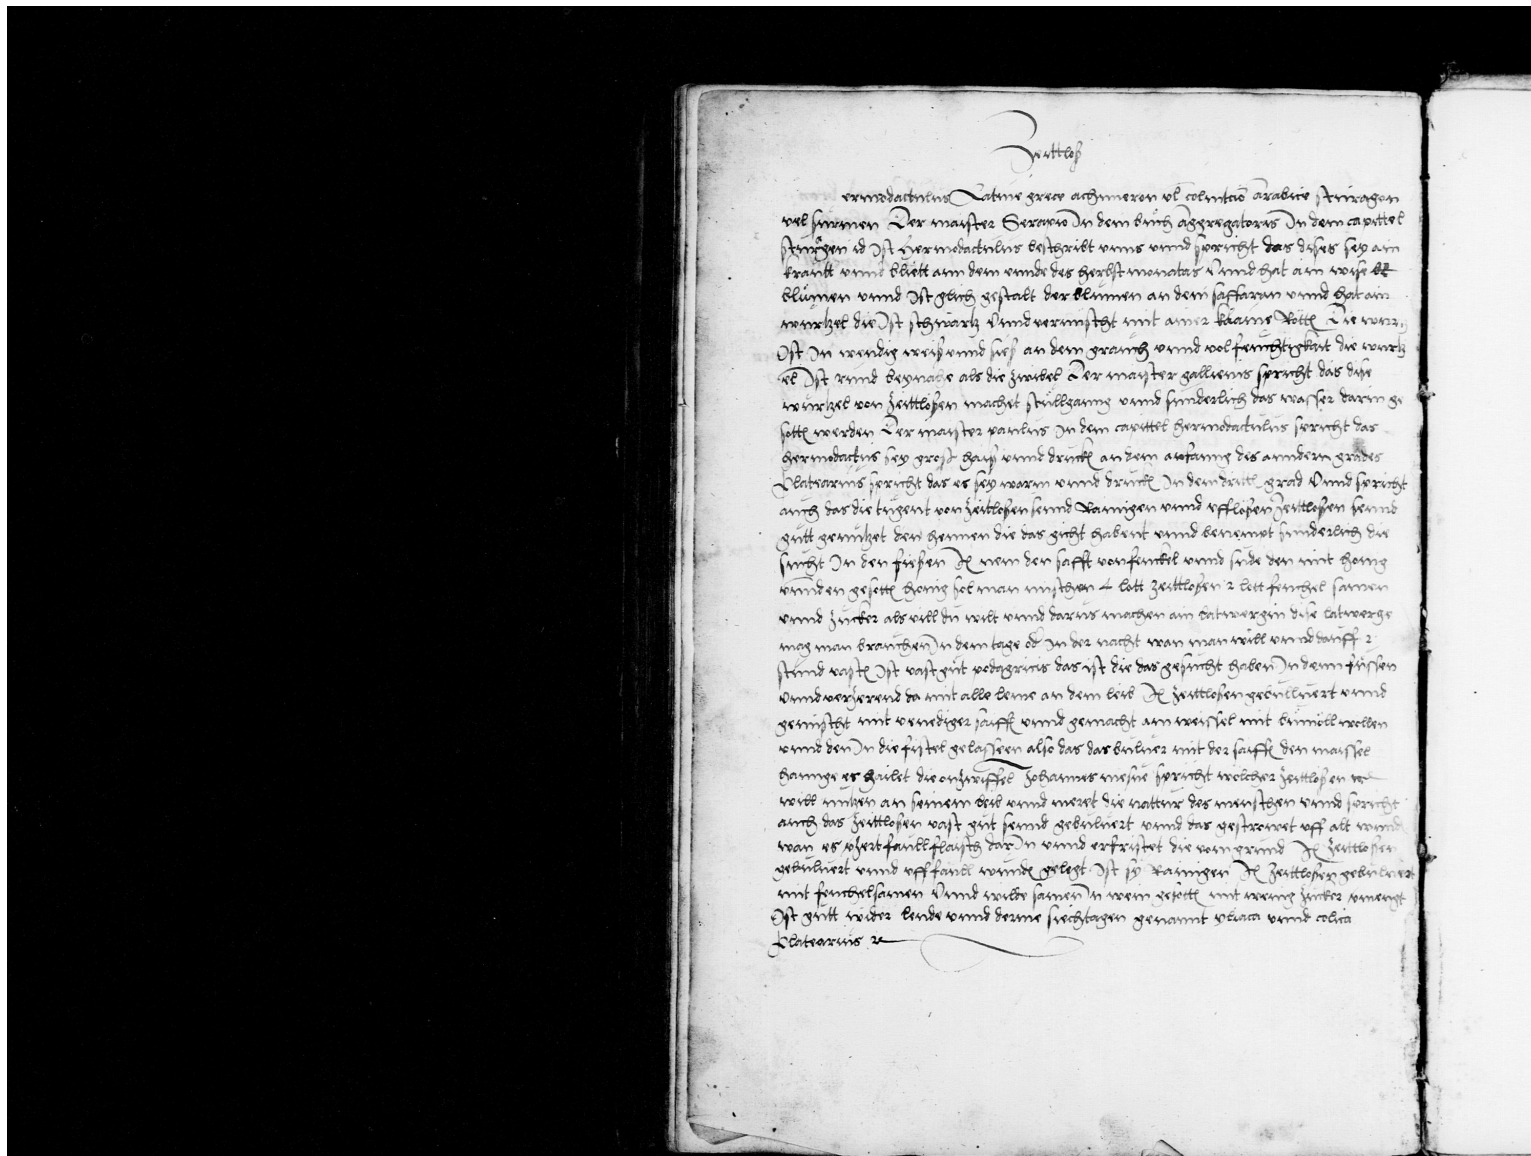 Zeittloß
ermodactulus Latine grece achimeron vel colintcio arabice stiragen
vel surmen Der maister Serapio In dem bůch aggregatoris In dem capittel
sturgen id Ist Hermodactulus beschribt vnns vnnd spricht das dises sey ain
kraůtt vnnd bliett ann dem ennde des herbst monatas Vnnd hat ain wise
blůmen vnnd Ist glich gestalt der blůmen an dem saffaran vnnd hat ain
wurtzel die Ist schwartz Vnnd vermischt mit ainer klaine Rötte Die wur
Ist In wendig weiß vnnd sieß an dem gesmach vnnd vol feuchtigkait die wurtz
el Ist rund beynahe als die zwibel Der maister gallienus spricht das dise
wurtzel von Zeittlosen machet stullganng vnnd sunderlich das wasser darin ge
sotten werden Der maister paulus In dem capittel hermodactulus spricht das
hermodactus sey groß haiß vnnd drucken an dem anfanng des anndern grades
Platearius spricht das es sey warm vnnd drucken In dem dritten grad Vnnd spricht
auch das die tugent von Zeitlosen sennd Rainigen vnnd vfflösen Zeittlosen sennd
gůtt genutzet den jhennen die das gicht habent vnnd benempt sunderlich die
sucht In den fießen Item nem den safft von fenckel vnnd sude den mit honig
vnnd den gesotten honig sol man mischen 4 lott Zeittlosen 2 lott fenchel samen
vnnd Zucker als vill du wilt vnnd darus machen ain latwergin dise latwerge
mag man brauchen In dem tage oder In der nacht wan man will vnnd dariff 2
stund vasten Ist vast gůt podagricis das ist die das gesucht haben In denn fiessen
Vnnd verzerend da mit alle leme an dem leib Item Zeittlosen gebulluert vnnd
gemischt mit venediger saiffen vnnd gemacht ain weissel mit bůmöll wollen
vnnd den In die fistel gelasseen also das das buluer mit der saiffen den maissel
hannge er hailet die on zwiffel Johannes mesue spricht wolcher Zeittlosen
will nutzen an seinem leib vnnd meret die nattur des menschen vnnd spricht
auch das Zeittlosen vast gůt sennd gebuluert vnnd das gestrowet vff alt wunden
wan es etzert faull flaisch dar In vnnd erfristet die vom grund Item Zeittlosen
gebuluert vnnd vff faull wunden gelegt Ist sy Rainigen Item Zeittlosen gebuluert
mit fenchelsamen Vnnd wilde samen In wein gesotten mit wenig Zucker vmengt
Ist gůtt wider lende vnnd derme siechtagen genannt yliaca vnnd colica
Platearius